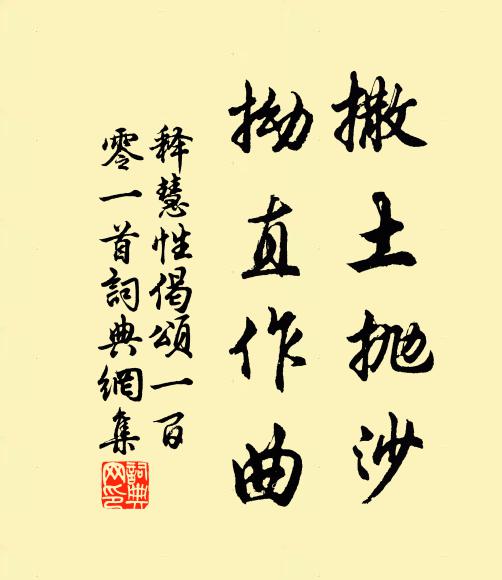 撒土抛沙
拗直作曲
释慧性偈颂一百
零一首词典網集
詞典網印